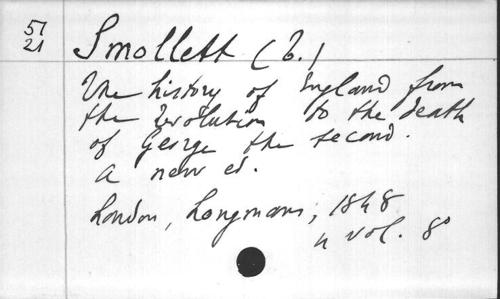 57
21
Smollett (T.)
The history of England from
the Revolution to the death
of George the second.
A new ed.
London, Longmans, 1848
4 vol. 8°